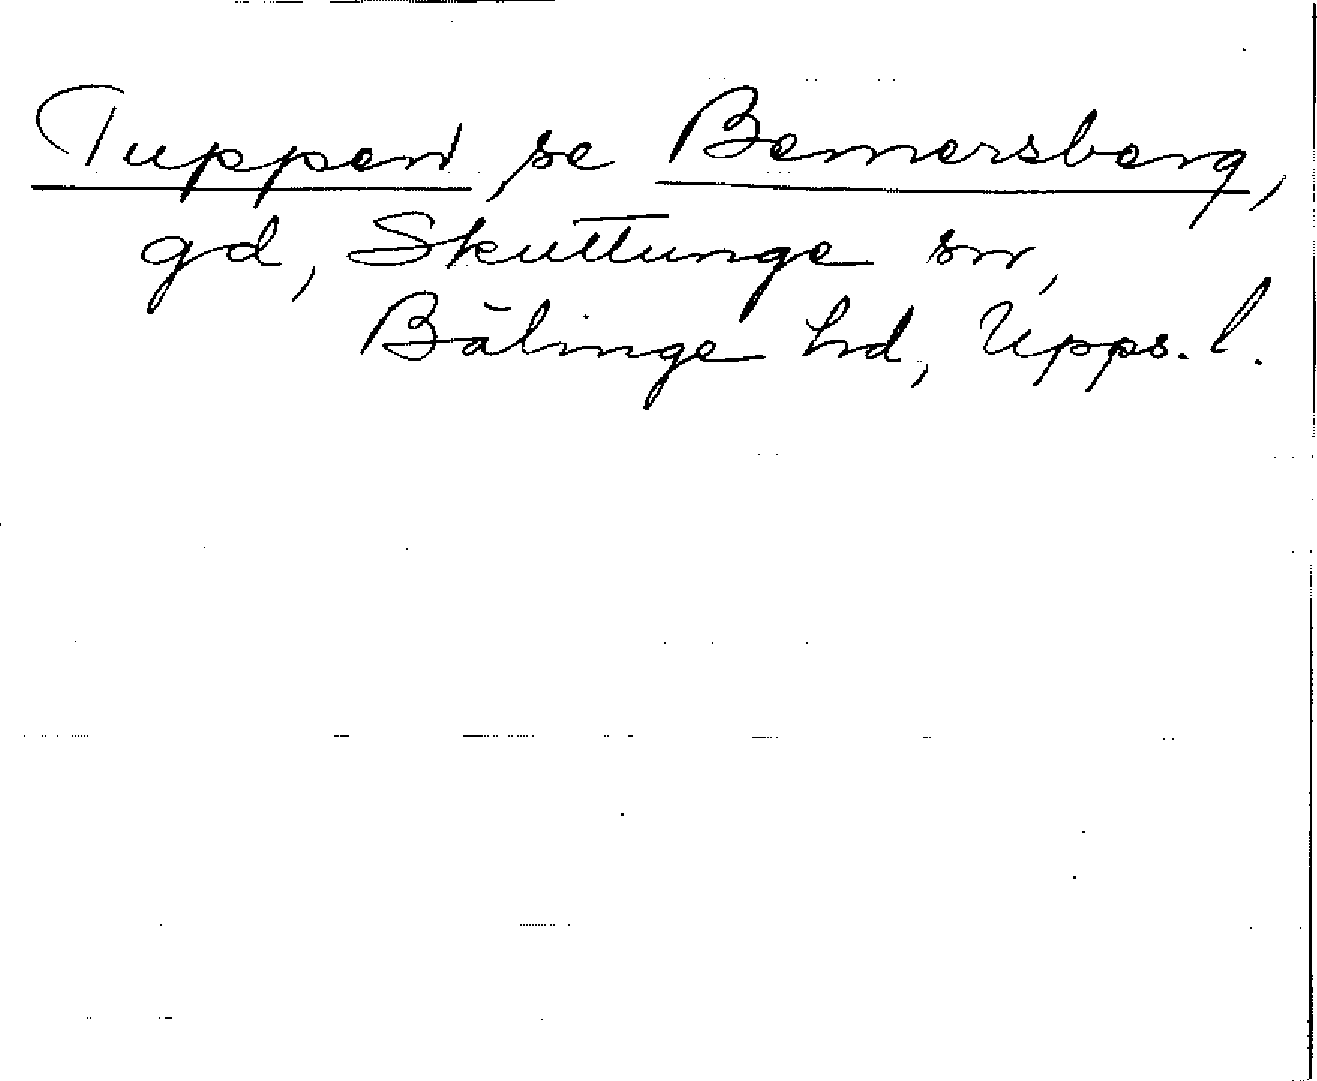 Tuppen, se Bemersberg,
gd, Skuttunge sn,
Bälinge hd, Upps. l.